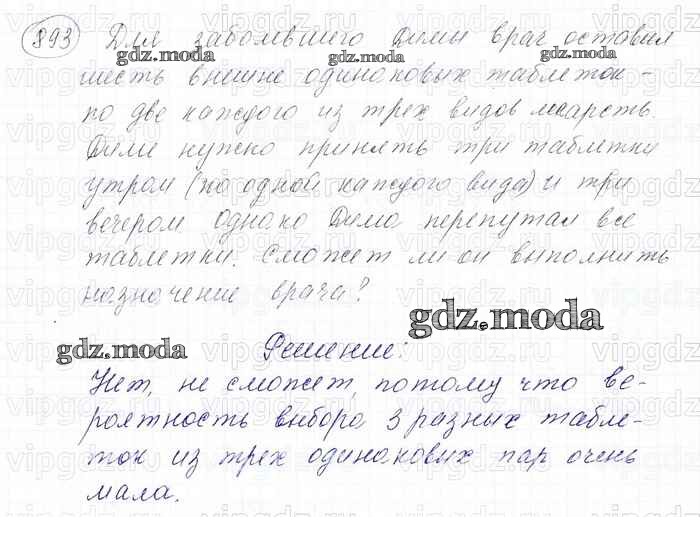 893 Для заболевшего Димы врач оставил
шесть внешне одинаковых таблеток -
по две каждого из трех видов лекарств.
Диме нужно принять три таблетки
утром (по одной каждого вида) и три
вечером однако Дима перепутал все
таблетки. Сможет ли он выполнить
назначение врача?
gdz.moda
Решение:
Нет, не сможет, потому что ве-
роятность выбора 3 разных табле-
ток из трех одинаковых пар очень
мала.